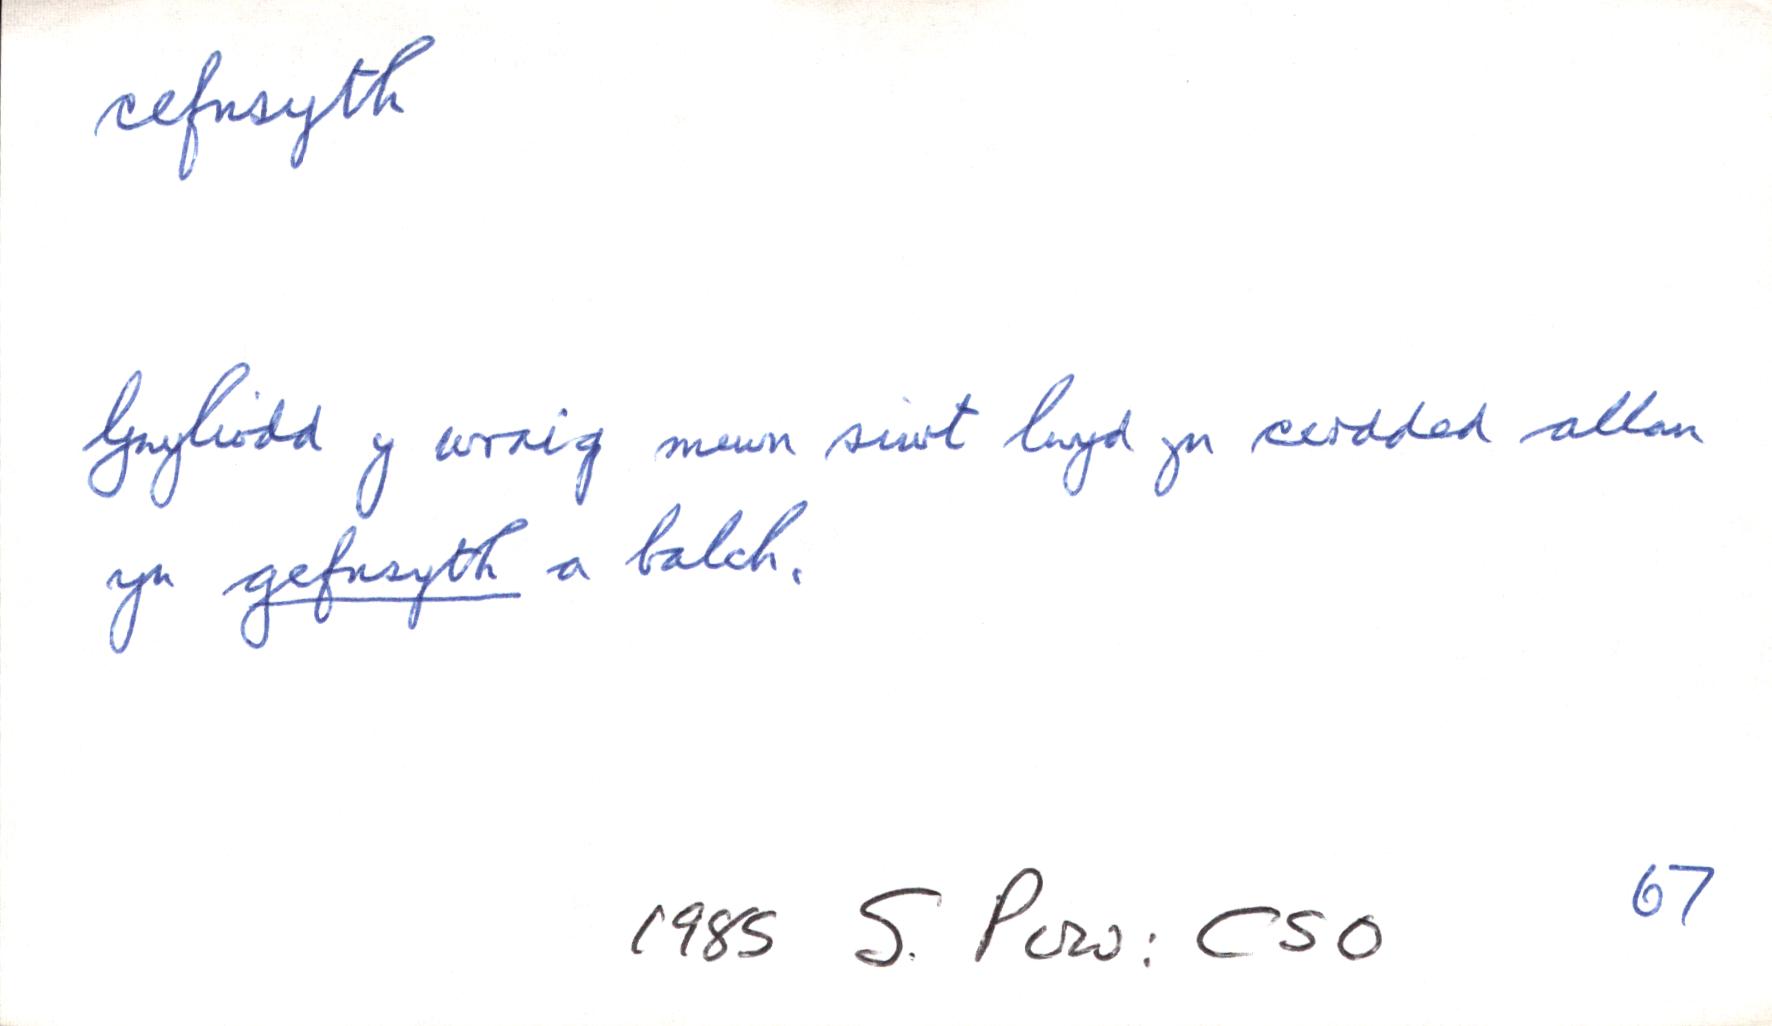 cefnsyth
Gwyliodd y wraig mewn siwt lwyd yn cerdded allan
yn gefnsyth a balch.
67
1985 S. Pow: CSO